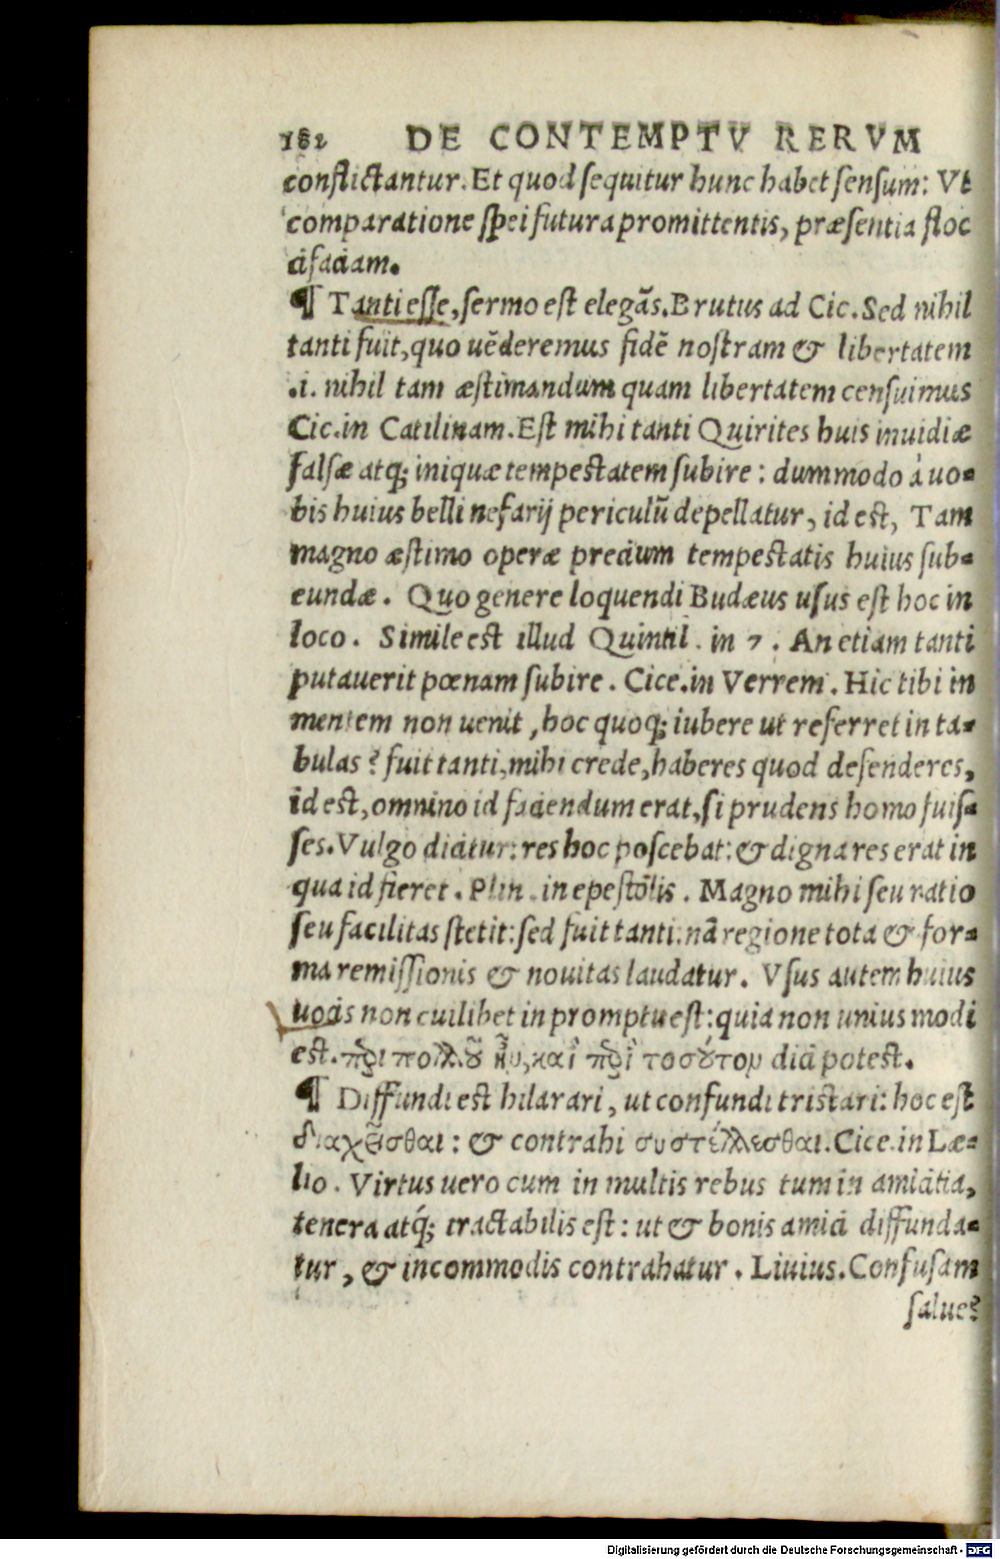 182 DE CONTEMPTV RERVM
conflictantur. Et quod sequitur hunc habet sensum: Vt
comparatione spei futura promittentis, præsentia floc
ci faciam.
¶ Tanti esse, sermo est elegãs. Brutus ad Cic. Sed nihil
tanti fuit, quo uẽderemus fidẽ nostram & libertatem
.i. nihil tam æstimandum quam libertatem censuimus
Cic. in Catilinam. Est mihi tanti Quirites huis inuidiæ
falsæ atq; iniquæ tempestatem subire: dummodo à uo-
bis huius belli nefarij periculũ depellatur, id est, Tam
magno æstimo operæ precium tempestatis huius sub-
eundæ. Quo genere loquendi Budæus usus est hoc in
loco. Simile est illud Quintil. in 7. An etiam tanti
putauerit pœnam subire. Cice. in Verrem. Hic tibi in
mentem non uenit, hoc quoq; iubere ut referret in ta-
bulas? fuit tanti, mihi crede, haberes quod defenderes,
id est, omnino id faciendum erat, si prudens homo fuis-
ses. Vulgo dicitur: res hoc poscebat: & digna res erat in
qua id fieret. Plin. in epestõlis. Magno mihi seu ratio
seu facilitas stetit: sed fuit tanti: nã regione tota & for-
ma remissionis & nouitas laudatur. Vsus autem huius
uocis non cuilibet in promptu est: quia non unius modi
est. πὲρι πολλοῦ καὶ πὲρὶ τοσούτου dici potest.
¶ Diffundi est hilarari, ut confundi tristari: hoc est
διαχεῖσθαι: & contrahi συστέλλεσθαι. Cice. in Læ-
lio. Virtus uero cum in multis rebus tum in amicitia,
tenera atq́; tractabilis est: ut & bonis amici diffunda-
tur, & incommodis contrahatur. Liuius. Confusam
salue?
Digitalisierung gefördert durch die Deutsche Forschungsgemeinschaft - DFG